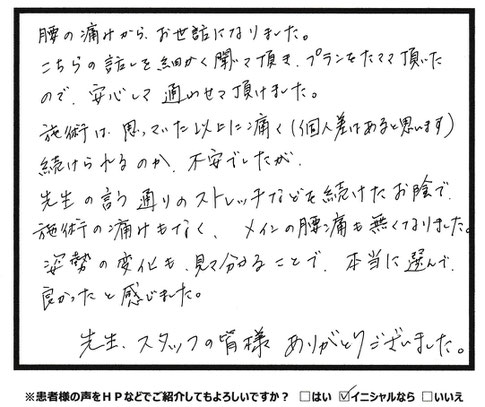 腰の痛みから、お世話になりました。
こちらの話しを細かく聞いて頂き、プランをたてて頂いた
ので、安心して通わせて頂けました。
施術は、思っていた以上に痛く（個人差はあると思います）
続けられるのか、不安でしたが、
先生の言う通りのストレッチなどを続けたお陰で、
施術の痛みもなく、メインの腰痛も無くなりました。
姿勢の変化も、見て分かることで、本当に選んで、
良かったと感じました。
先生、スタッフの皆様 ありがとうございました。
※患者様の声をＨＰなどでご紹介してもよろしいですか？ □はい ☑イニシャルなら □いいえ